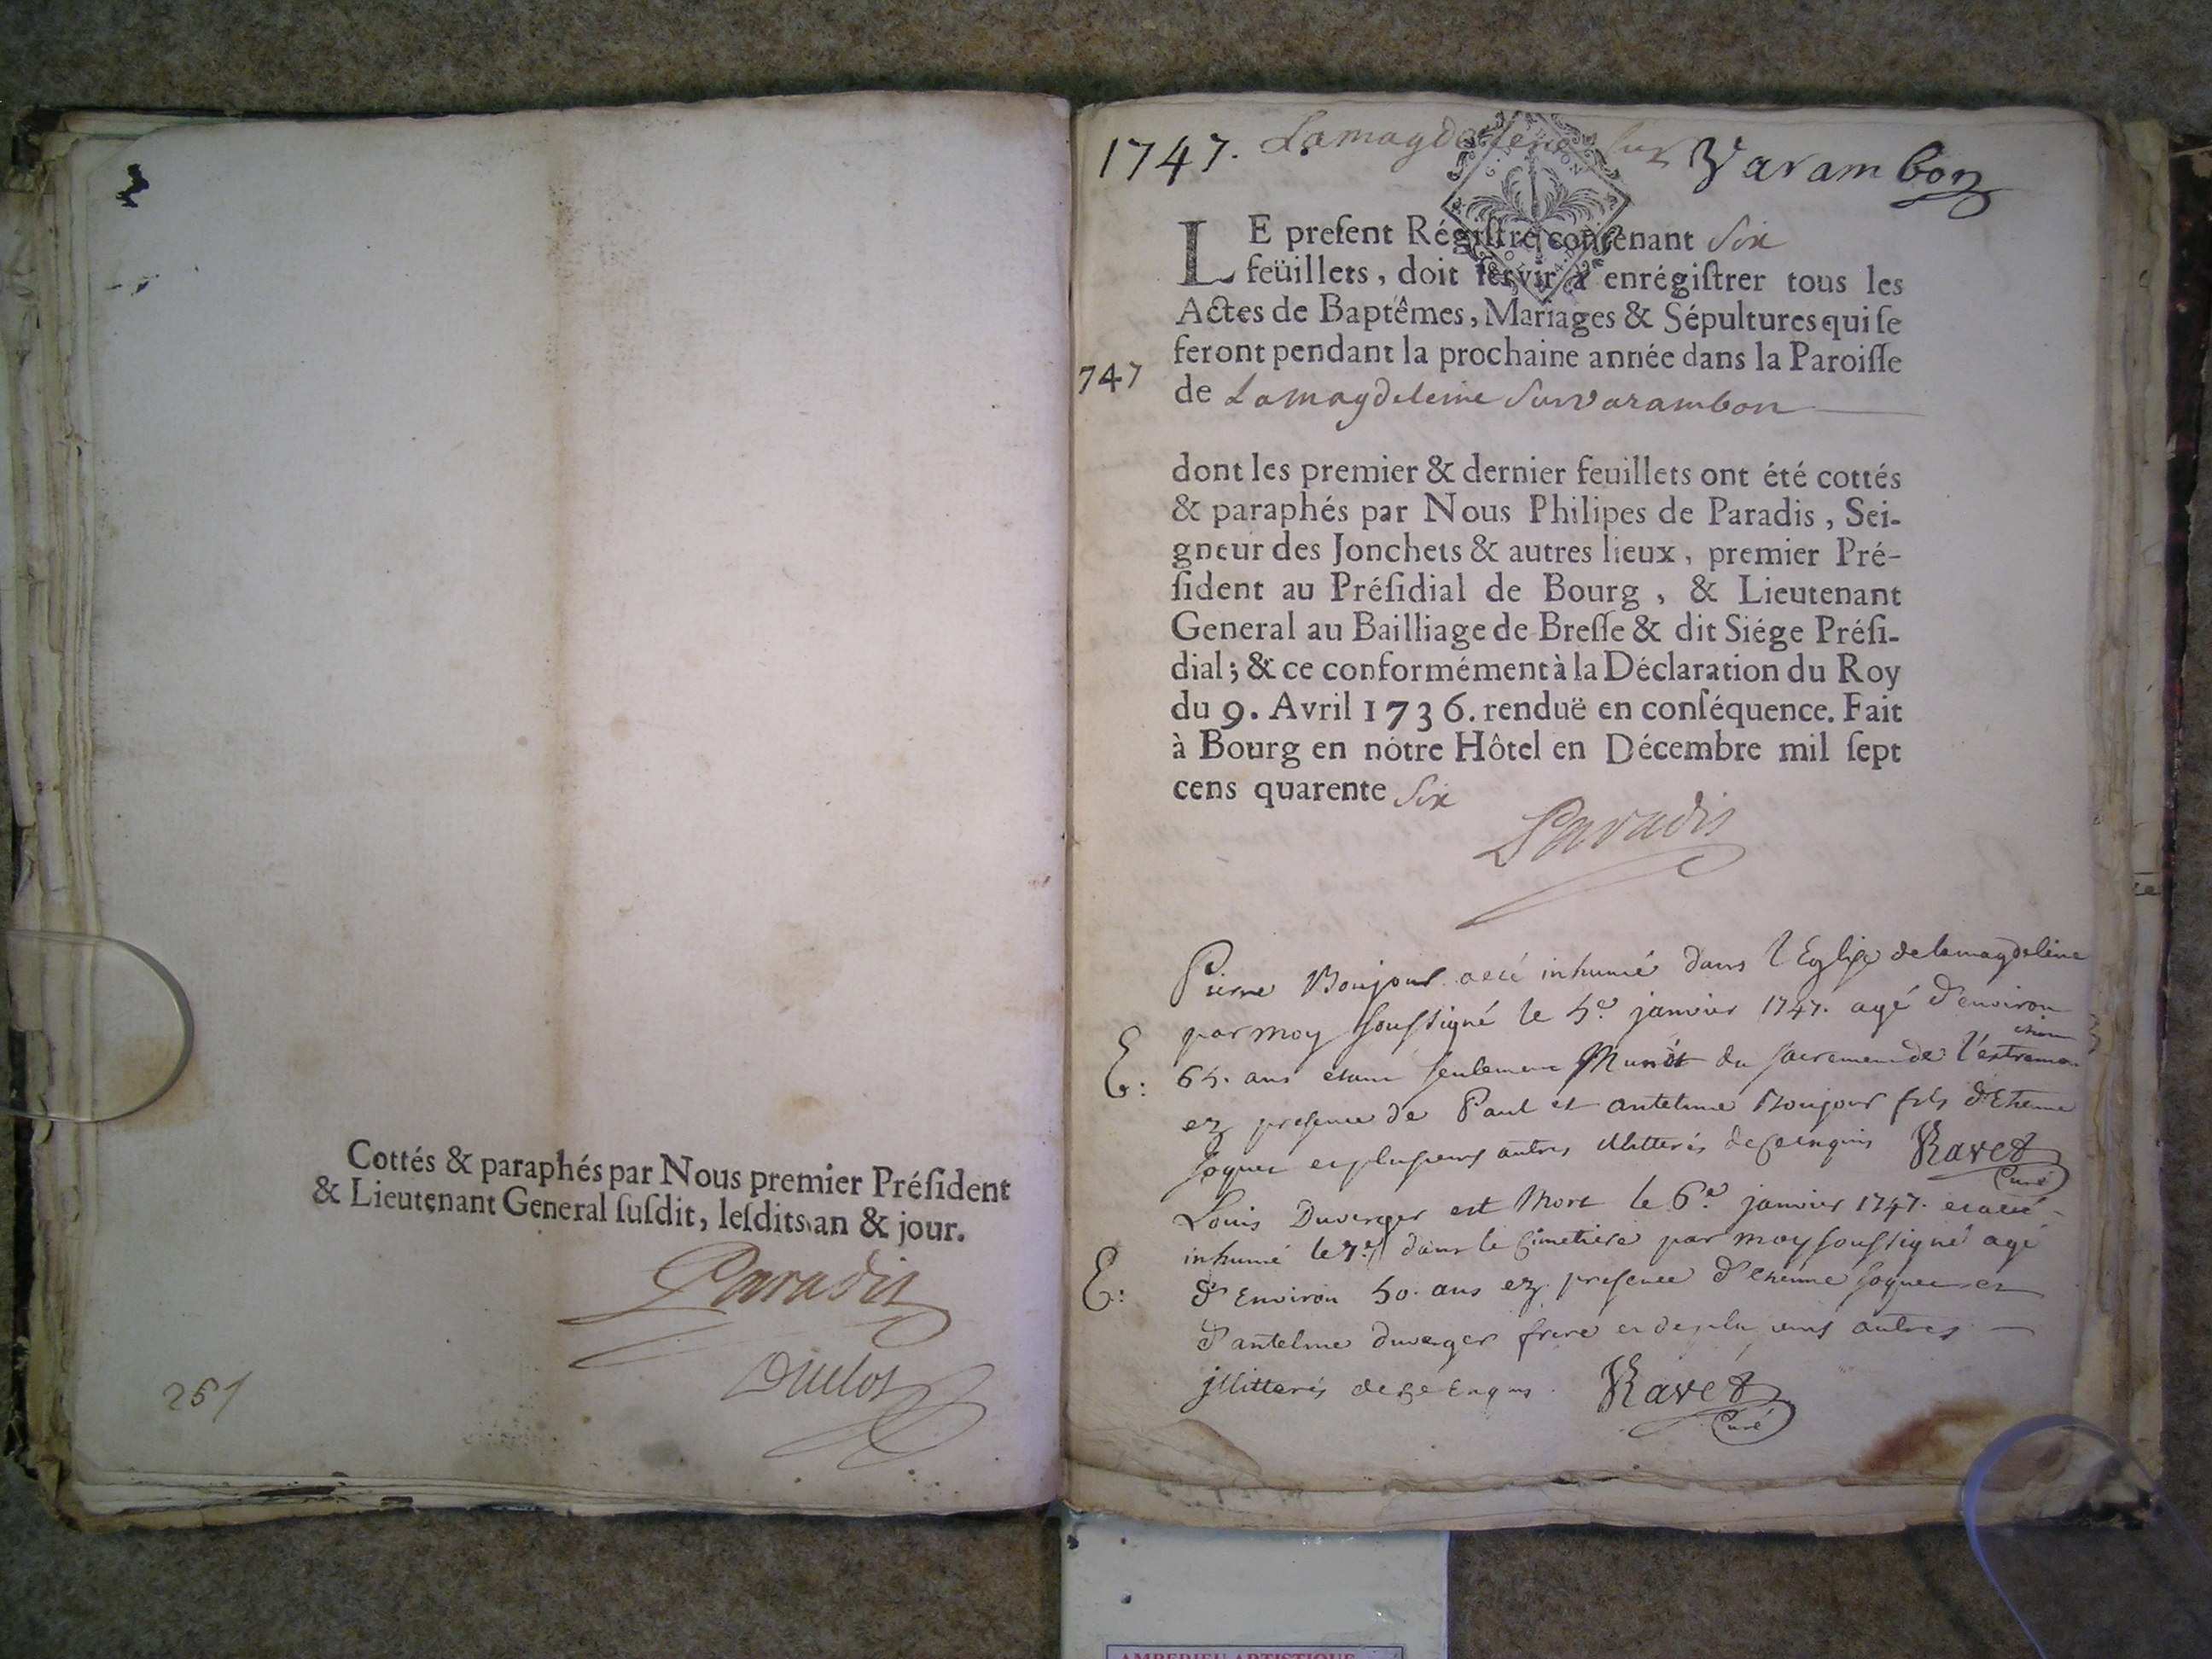 Cottés & paraphés par Nous premier Préſident
& Lieutenant General ſuſdit, leſdits an & jour.
Paradis
Duclos
251
1747. Lamagdeleine sur Varambon
LE preſent Régiſtre contenant Six
feüillets, doit ſervir à enrégiſtrer tous les
Actes de Baptêmes, Mariages & Sépultures qui ſe
feront pendant la prochaine année dans la Paroiſſe
747
de Lamagdeleine Survarambon
dont les premier & dernier feuillets ont été cottés
& paraphés par Nous Philipes de Paradis, Sei-
gneur des Jonchets & autres lieux, premier Pré-
ſident au Préſidial de Bourg, & Lieutenant
General au Bailliage de Breſſe & dit Siége Préſi-
dial; & ce conformément à la Déclaration du Roy
du 9. Avril 1736. renduë en conſéquence. Fait
à Bourg en nôtre Hôtel en Décembre mil ſept
cens quarente Six
Paradis
Pierre Boujour a eté inhumé dans l'Eglise de lamagdeleine
par moy soussigné le 5e janvier 1747. agé d'environ
65. ans etant seulement Munit du sacrement de l'extreme
ez presence de Paul et antelme Boujour fils d'Etienne
et plusieurs autres illitterés de ce enquis Ravet
Curé
Louis Duverger est Mort le 6e. janvier 1747. et a eté
inhumé le 7e. dans le Cimetiere par moy soussigné agé
d'Environ 50. ans ez presence d'etienne et
d'antelme duverger frere et de plusieurs autres
jllitterés de ce Enquis. Ravet
Curé
AMBERIEU ARTISTIQUE